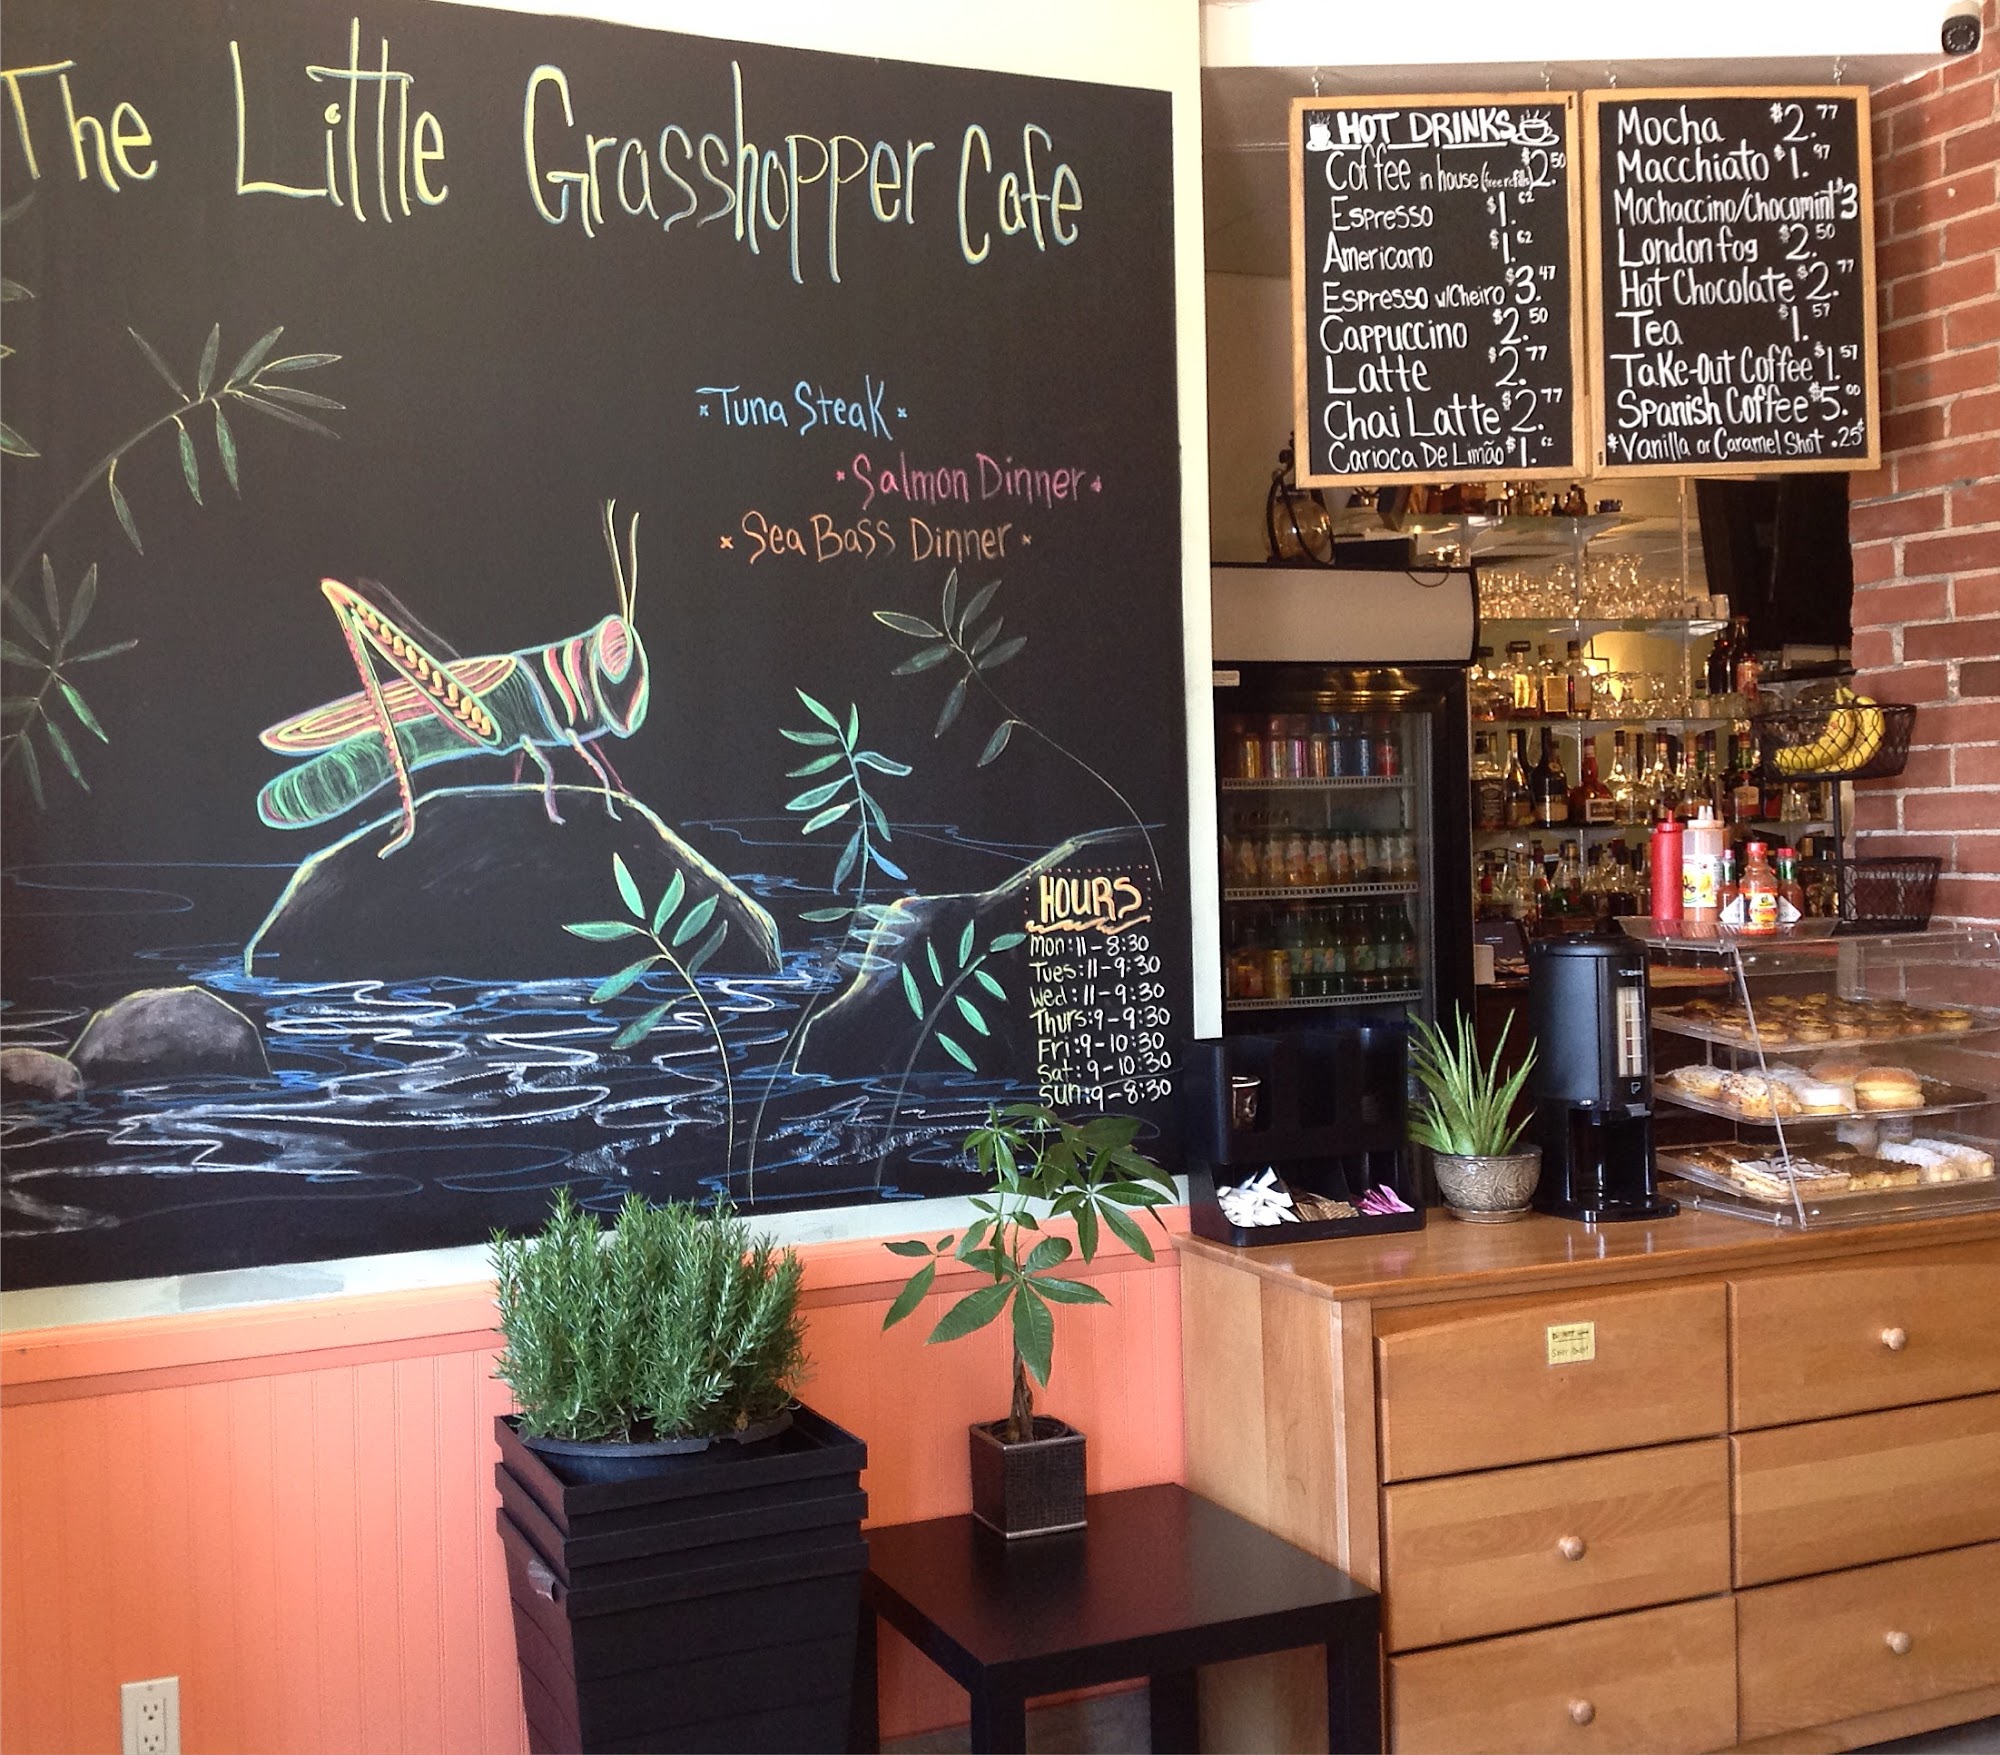 The Little Grasshopper Cafe
Tuna Steak
Salmon Dinner
Sea Bass Dinner
HOURS
Mon: 11 - 8:30
Tues: 11 - 9:30
Wed: 11 - 9:30
Thurs: 9 - 9:30
Fri: 9 - 10:30
Sat: 9 - 10:30
Sun: 9 - 8:30
HOT DRINKS
Coffee in house (free refills) $2.50
Espresso $1.62
Americano $1.62
Espresso w/Cheiro $3.47
Cappuccino $2.50
Latte $2.77
Chai Latte $2.77
Carioca De Limão $1.62
Mocha $2.77
Macchiato $1.97
Mochaccino/Chocomint $3
London Fog $2.50
Hot Chocolate $2.77
Tea $1.57
Take-Out Coffee $1.57
Spanish Coffee $5.00
*Vanilla or Caramel Shot .25¢